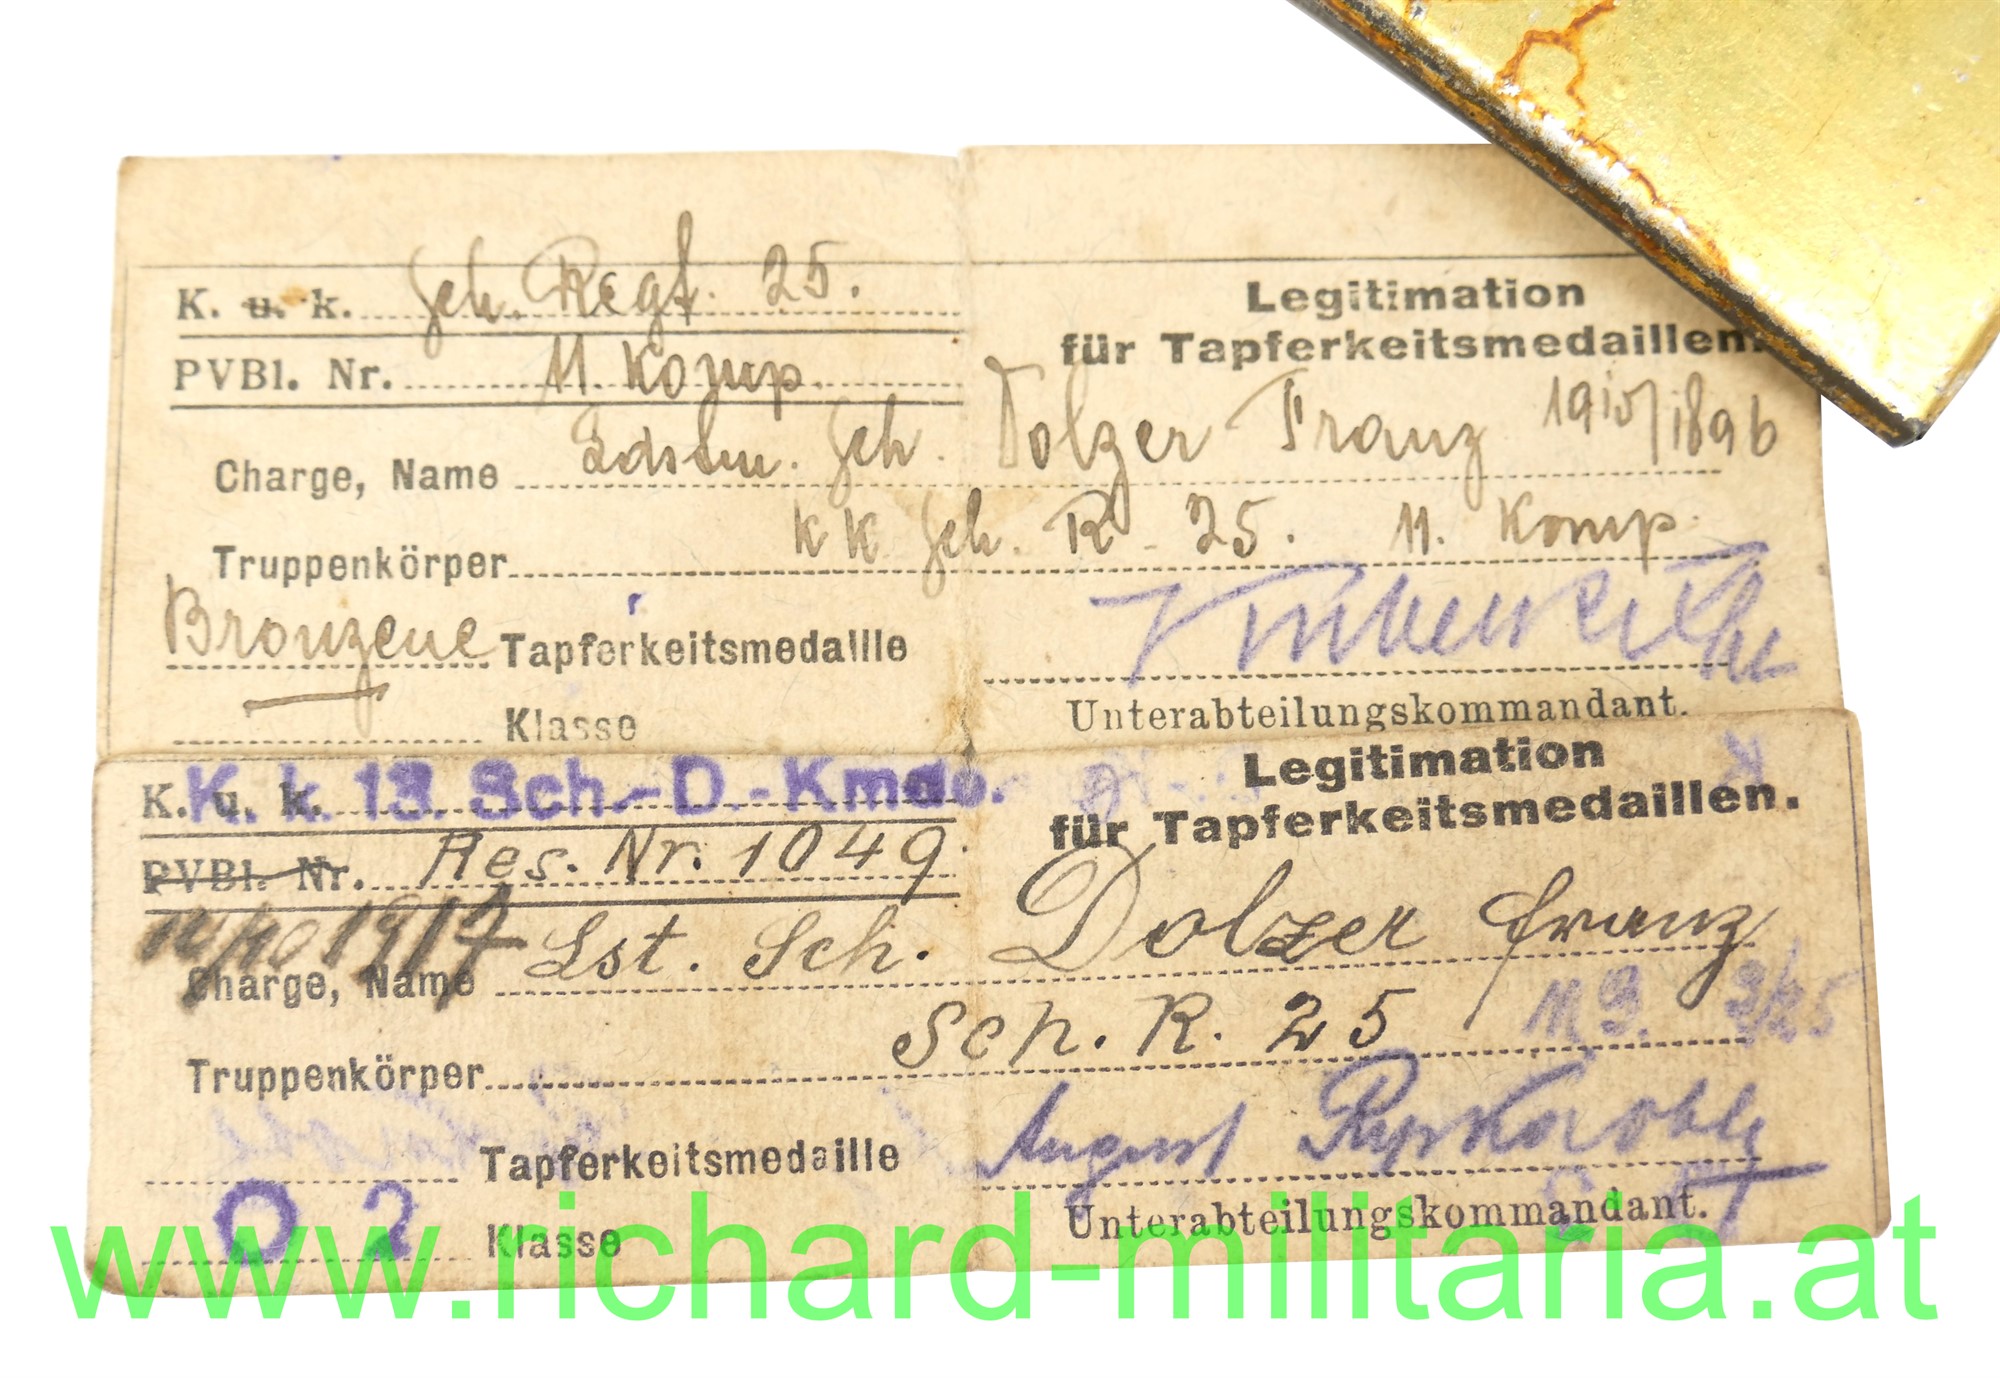 K. u. k. Sch. Regt. 25.
PVBl. Nr. 11. Komp.
Legitimation
für Tapferkeitsmedaillen.
Charge, Name Ldstm. Sch. Dolzer Franz 1915/1896
Truppenkörper K K Sch. R. 25. 11. Komp.
Bronzene Tapferkeitsmedaille
Klasse
Unterabteilungskommandant.
K. u. k. K. k. 13. Sch.-D.-Kmdo.
PVBl. Nr. Res. Nr. 1049
12/10 1917
Legitimation
für Tapferkeitsmedaillen.
Charge, Name Lst. Sch. Dolzer Franz
Truppenkörper Sch. R. 25
Tapferkeitsmedaille
O 2 Klasse
August
Unterabteilungskommandant.
www.richard-militaria.at